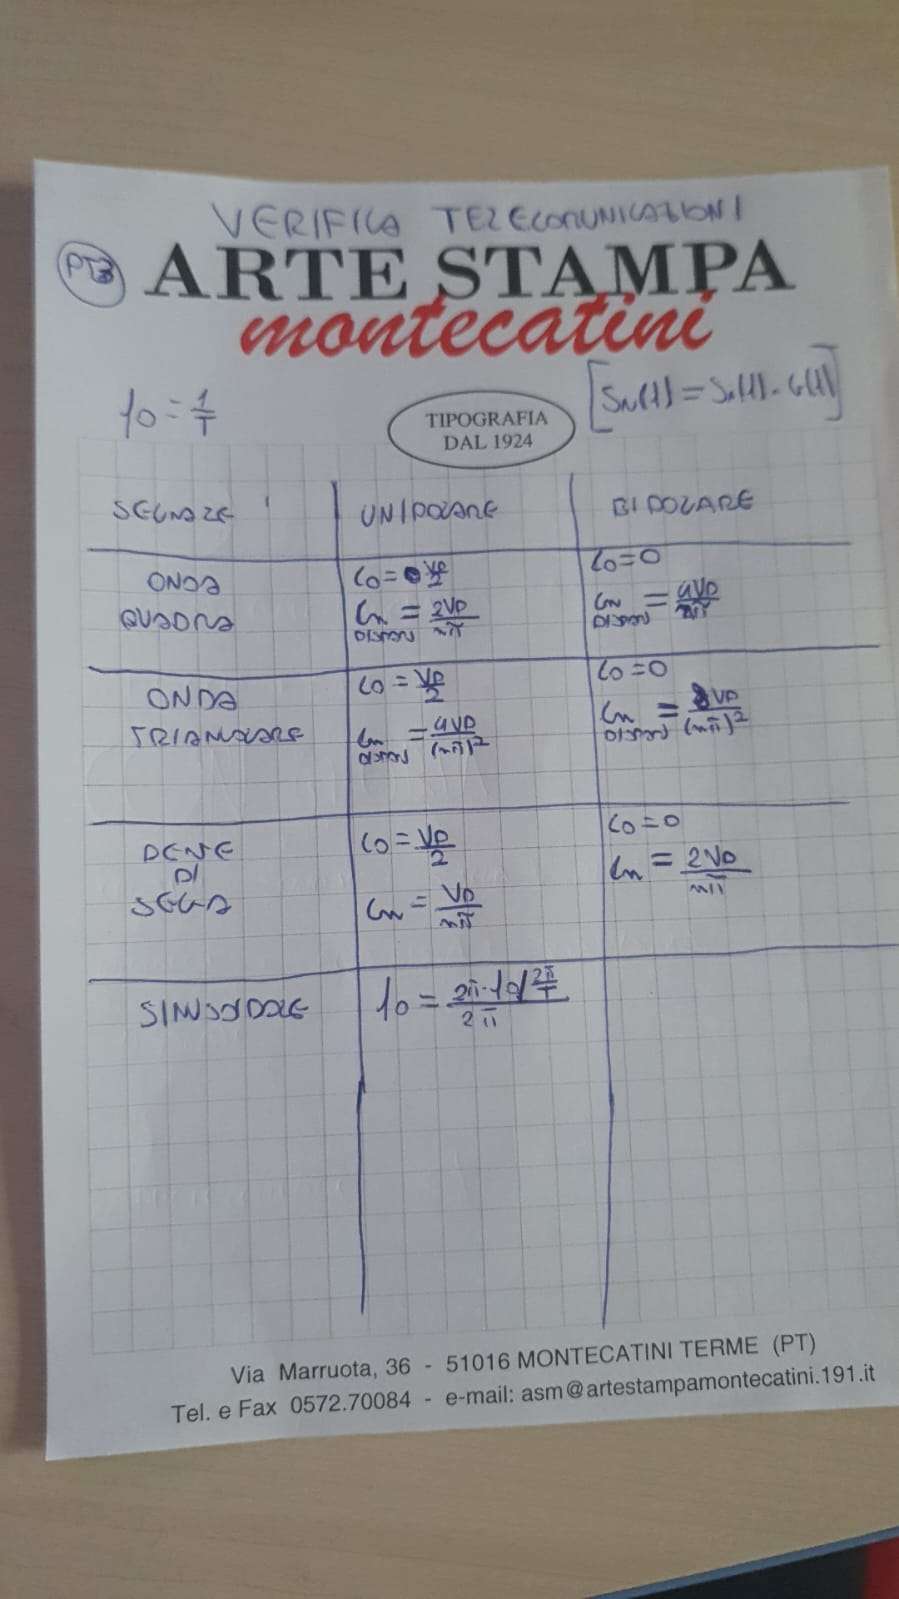 VERIFICA TELECOMUNICAZIONI
PT3
ARTE STAMPA
montecatini
f0 = 1/T
TIPOGRAFIA
DAL 1924
SEGNALE UNIPOLARE BIPOLARE
ONDA
QUADRA
C0 = VP/2
Cn = 2VP/nπ
DISPARI
C0 = 0
Cn = 4VP/nπ
DISPARI
ONDA
TRIANGOLARE
C0 = VP/2
Cn = 4VP/(nπ)²
DISPARI
C0 = 0
Cn = 8VP/(nπ)²
DISPARI
DENTE
DI
SEGA
C0 = VP/2
Cn = VP/nπ
C0 = 0
Cn = 2VP/nπ
SINUSOIDALE
Via Marruota, 36 - 51016 MONTECATINI TERME (PT)
Tel. e Fax 0572.70084 - e-mail: asm@artestampamontecatini.191.it